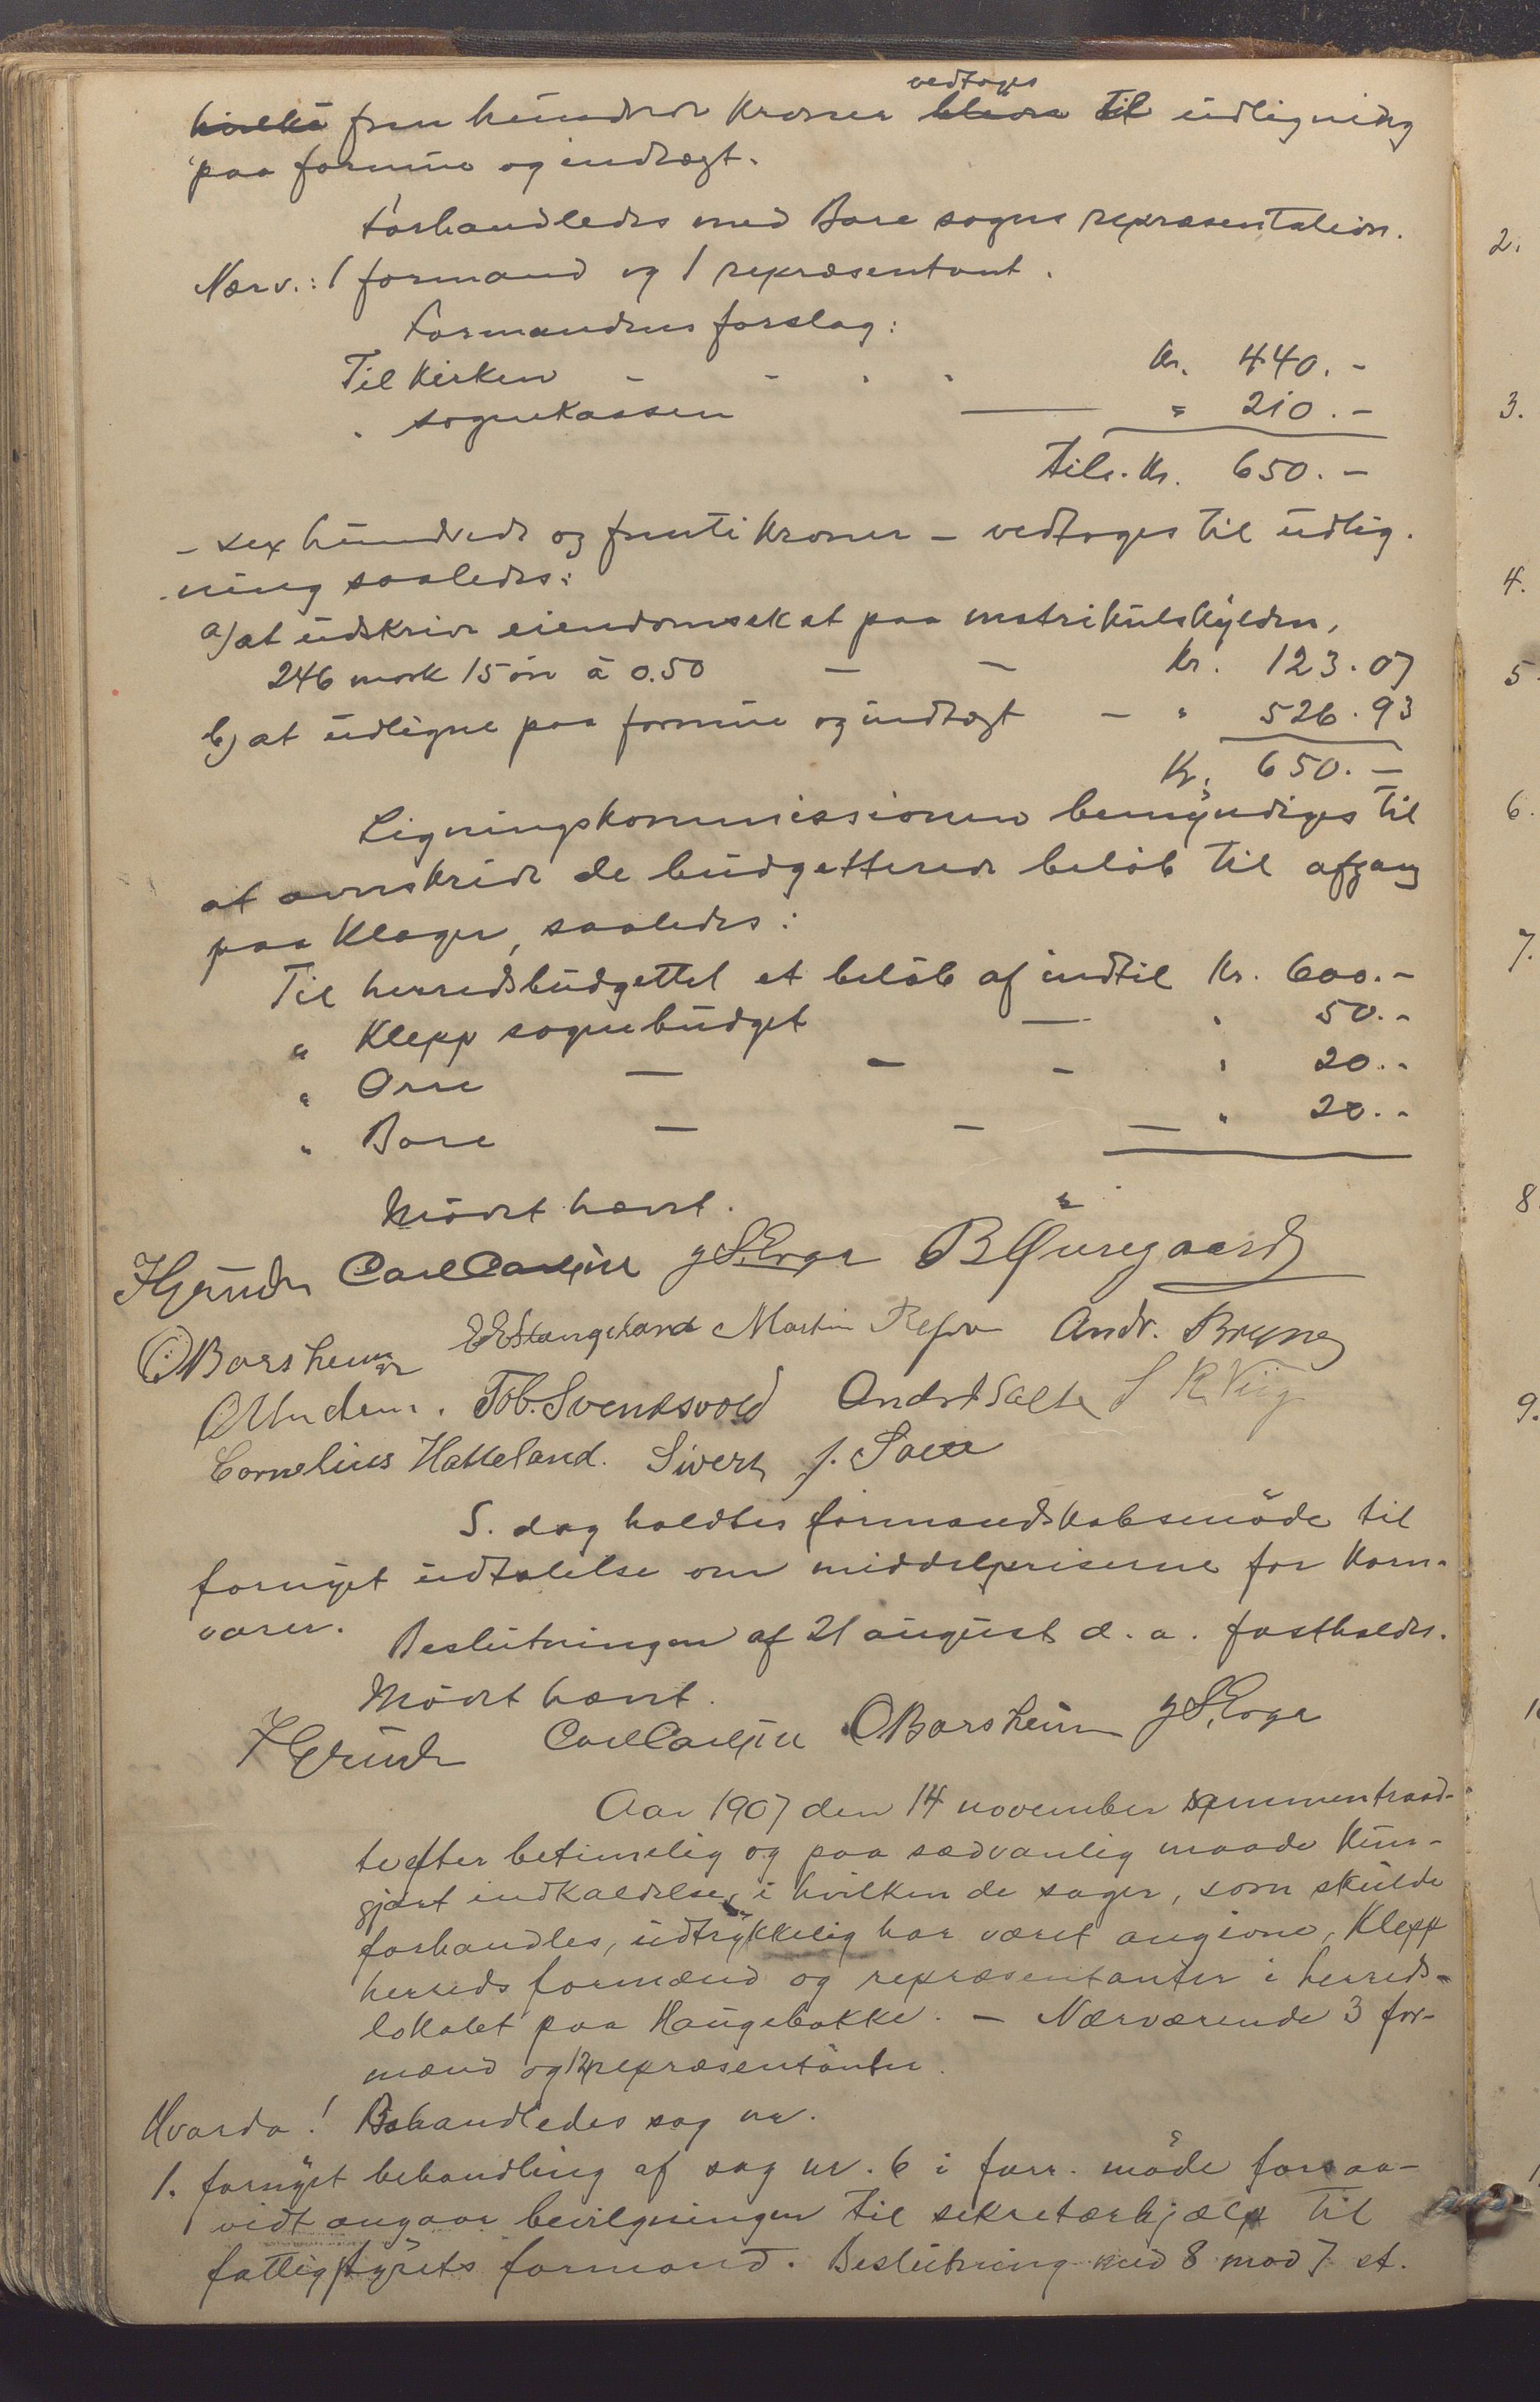 fem hundrede kroner vedtages til udligning
paa formue og indtægt.
Forhandledes med Bore sogns repræsentation.
Nærv.: 1 formand og 1 repræsentant.
Formandens forslag:
Til kirken - - - - kr. 440.-
" sognekassen — " 210.-
Tils. kr. 650.-
- sex hundrede og femti kroner - vedtages til udlig-
ning saaledes:
a) at udskrive eiendomsskat paa matrikulskylden,
246 mark 15 øre à 0.50 — — kr. 123.07
b) at udligne paa formue og indtægt — " 526.93
Kr. 650.—
Ligningskommissionen bemyndiges til
at overskride de budgetterede beløb til afgang
paa klager, saaledes:
Til herredsbudgettet et beløb af indtil kr. 600.-
" Klepp sognebudget — " 50.-
" Orre — — - " 20.-
" Bore — — — " 20.-
Mødet hævet.
H Grude Carl Carlsen J S. Erga B Øuregaard
O Borsheim E E Stangeland Martin Refve Andr. Bryne
Tob. Svendsvold Andr Salte S R Viig
Cornelius Hatteland. Sivert J.
S. dag holdtes formandskabsmøde til
fornyet udtalelse om middelpriserne for korn-
varer.
Beslutningen af 21 august d. a. fastholdes.
Mødet hævet.
H Grude Carl Carlsen O Borsheim J S. Erga
Aar 1907 den 14 november sammentraad-
te efter betimelig og paa sædvanlig maade kun-
gjort indkaldelse, i hvilken de sager, som skulde
forhandles, udtrykkelig har været angivne, Klepp
herreds formænd og repræsentanter i herreds-
lokalet paa Haugebakke. — Nærværende 3 for-
mænd og 12 repræsentanter.
Hvorda! Behandledes sag nr.
1. fornyet behandling af sag nr. 6 i forr. møde forsaa-
vidt angaar bevilgningen til sekretærhjælp til
fattigstyrets formand. Beslutning med 8 mod 7 st.
2.
3.
4.
5.
6.
7.
8.
9.